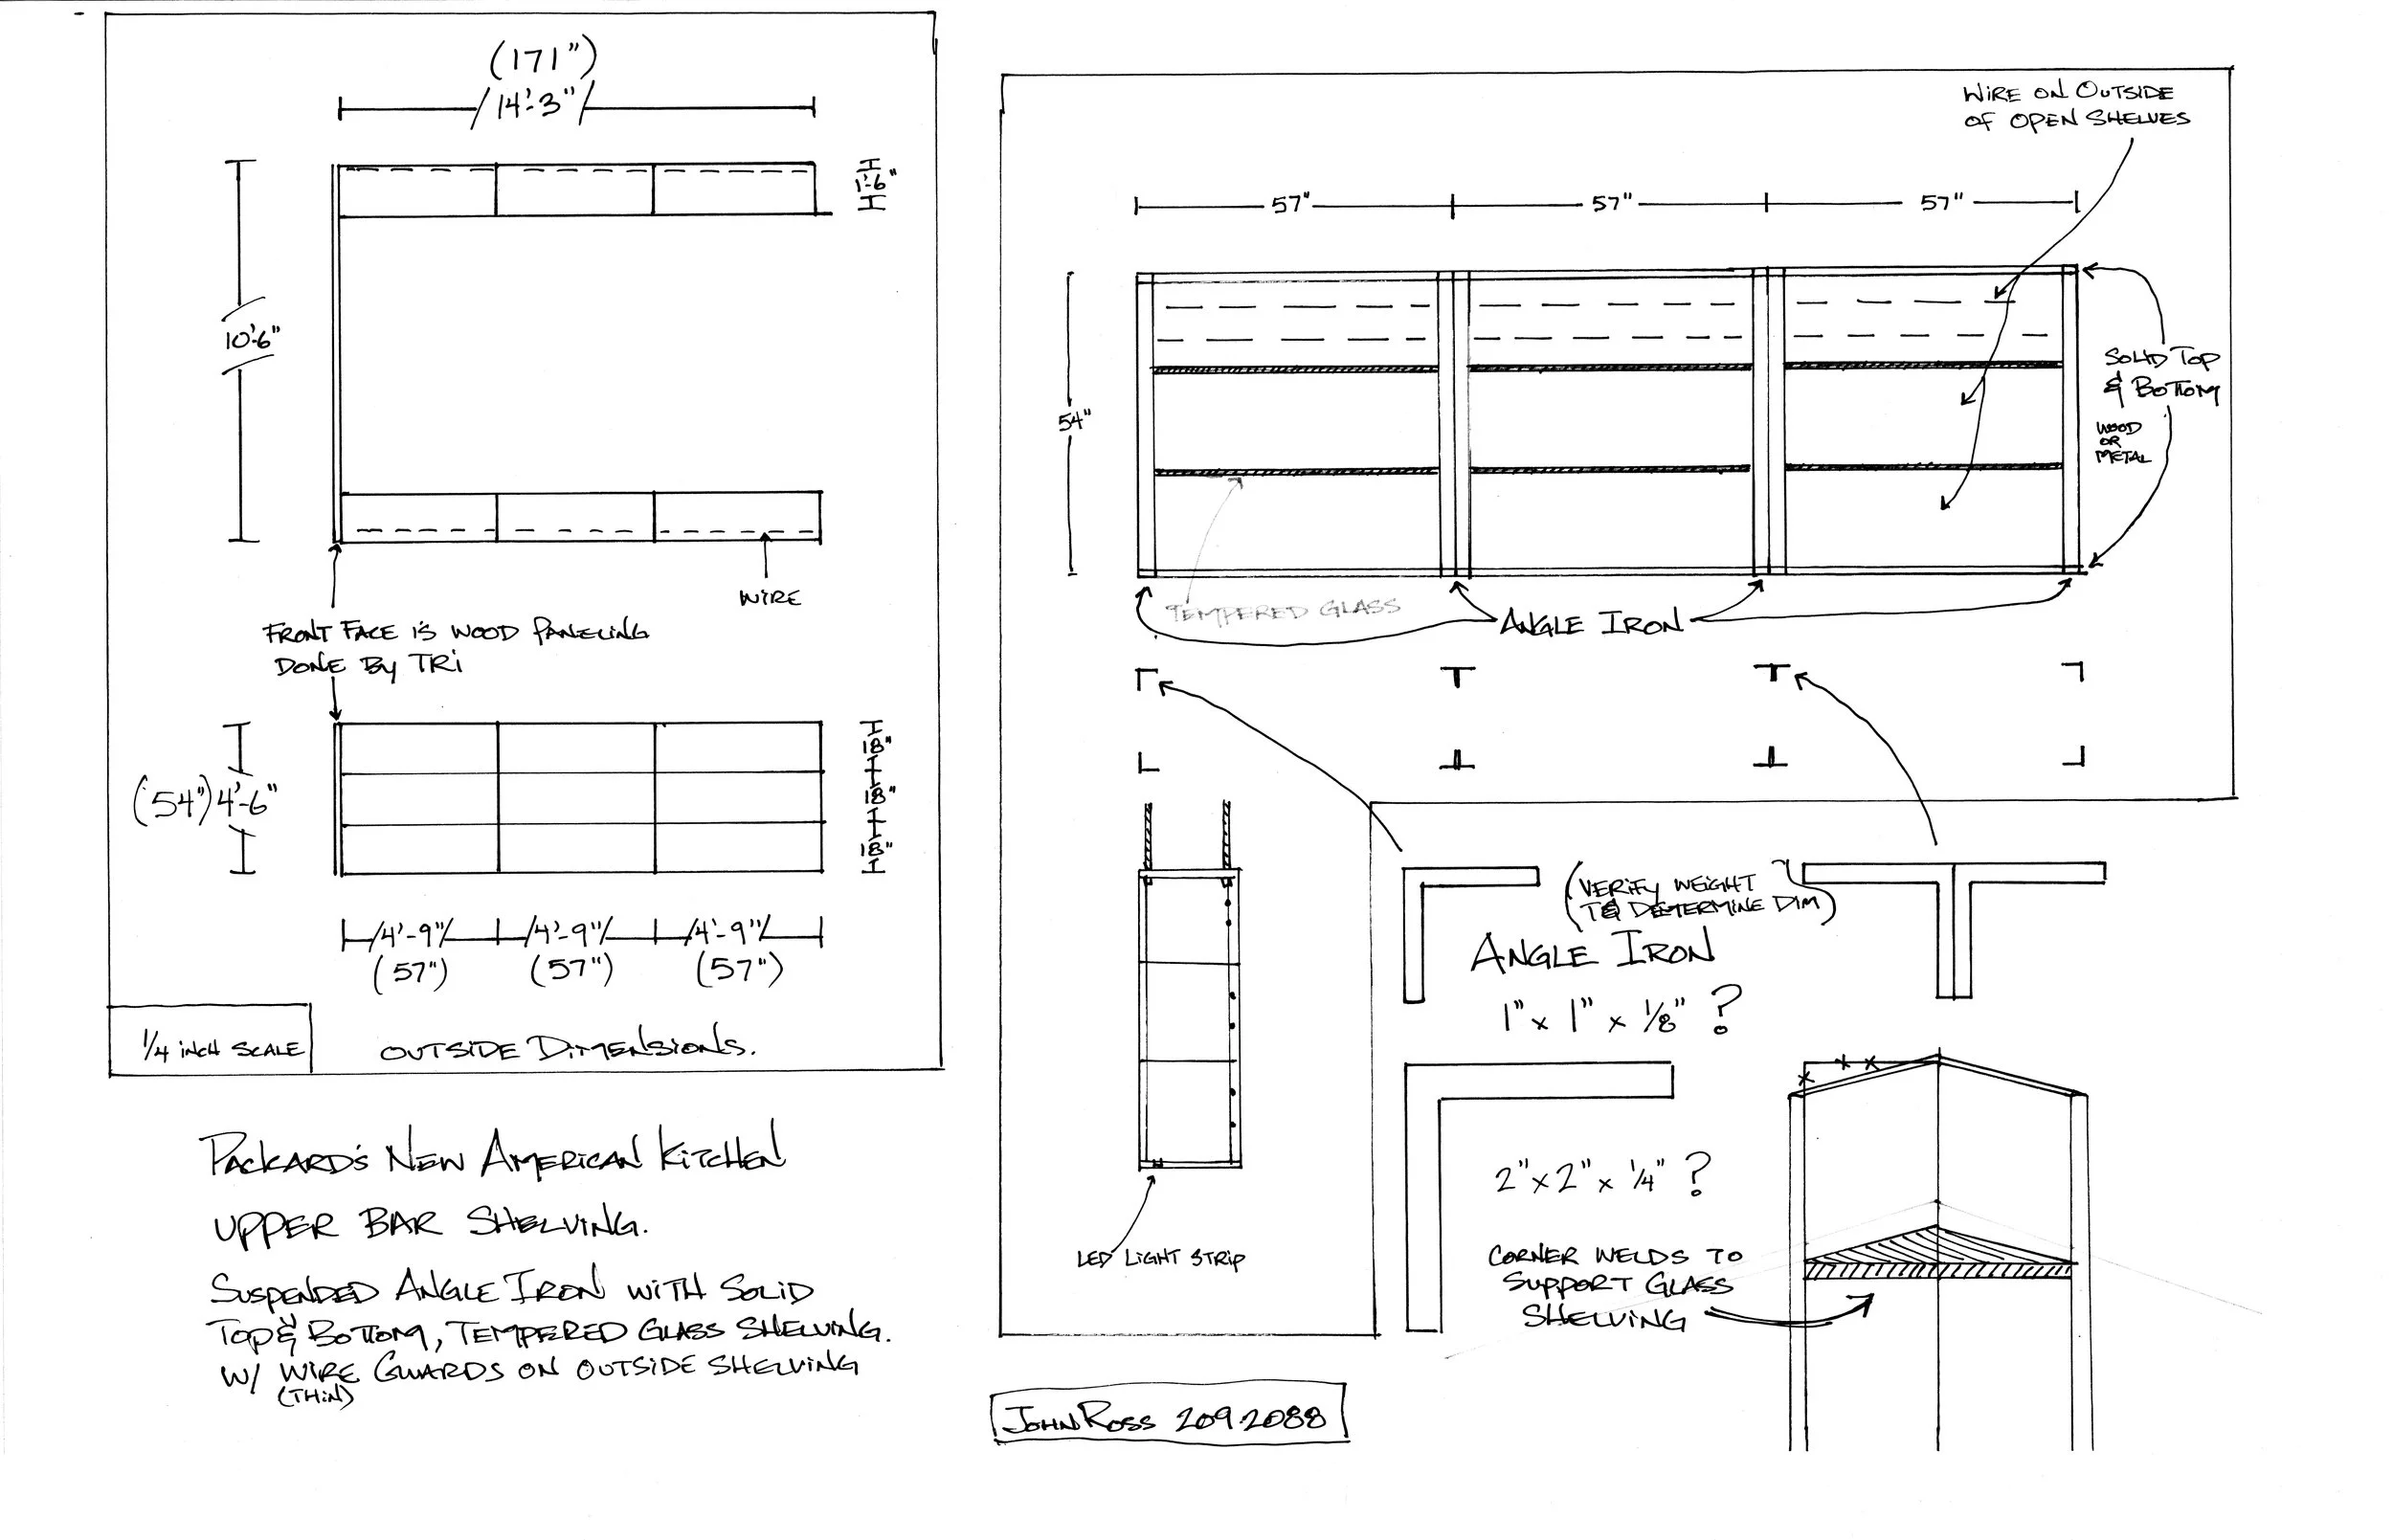 (171")
14'-3"
1'-6"
10'-6"
WIRE
FRONT FACE IS WOOD PANELING
DONE BY TRI
(54") 4'-6"
18"
18"
18"
4'-9" 4'-9" 4'-9"
(57") (57") (57")
1/4 INCH SCALE
OUTSIDE DIMENSIONS.
PACKARD'S NEW AMERICAN KITCHEN
UPPER BAR SHELVING.
SUSPENDED ANGLE IRON WITH SOLID
TOP & BOTTOM, TEMPERED GLASS SHELVING.
W/ WIRE GUARDS ON OUTSIDE SHELVING
(THIN)
WIRE ON OUTSIDE
OF OPEN SHELVES
57" 57" 57"
54"
SOLID TOP
& BOTTOM
WOOD
OR
METAL
TEMPERED GLASS
ANGLE IRON
LED LIGHT STRIP
(VERIFY WEIGHT
TO DETERMINE DIM)
ANGLE IRON
1" x 1" x 1/8" ?
2" x 2" x 1/4" ?
CORNER WELDS TO
SUPPORT GLASS
SHELVING
JOHN ROSS 209.2088